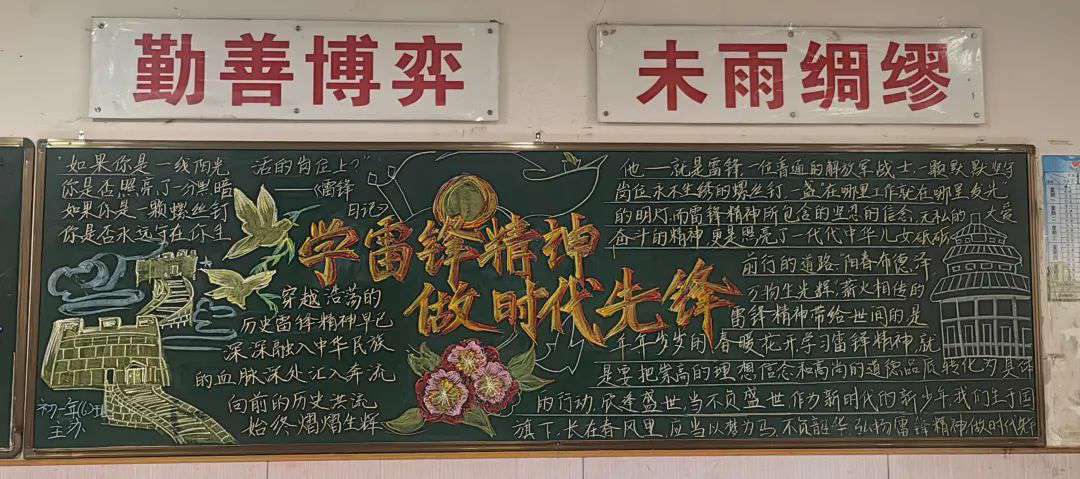 勤善博弈
未雨绸缪
"如果你是一线阳光
你是否照亮了一分黑暗
如果你是一颗螺丝钉
你是否永远守在你生
活的岗位上?"
——《雷锋
日记》
学雷锋精神
做时代先锋
穿越浩荡的
历史雷锋精神早已
深深融入中华民族
的血脉深处汇入奔流
向前的历史洪流
始终熠熠生辉
初一
主办
他——就是雷锋一位普通的解放军战士,一颗默默坚守
岗位永不生锈的螺丝钉,一盏"在哪里工作就在哪里发光"
的明灯而雷锋精神所包含的坚忍的信念,无私的大爱
奋斗的精神,更是照亮了一代代中华儿女砥砺
前行的道路.阳春布德泽
万物生光辉,薪火相传的
雷锋精神带给世间的是
年年岁岁的春暖花开学习雷锋精神,就
是要把崇高的理想信念和高尚的道德品质转化为具体
的行动.欣逢盛世,当不负盛世作为新时代的新少年我们生于国
旗下,长在春风里,应当以梦为马,不负韶华,弘扬雷锋精神做时代先锋